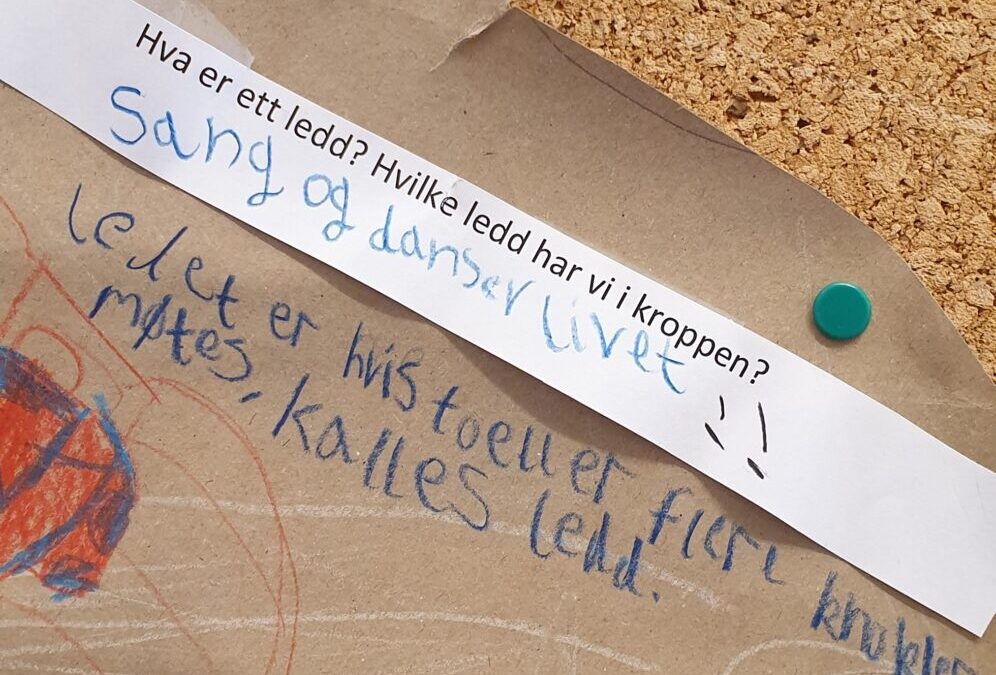 Hva er ett ledd? Hvilke ledd har vi i kroppen?
Sang og danser livet
!!
le let er hvis to eller flere knokler
møtes, kalles ledd.